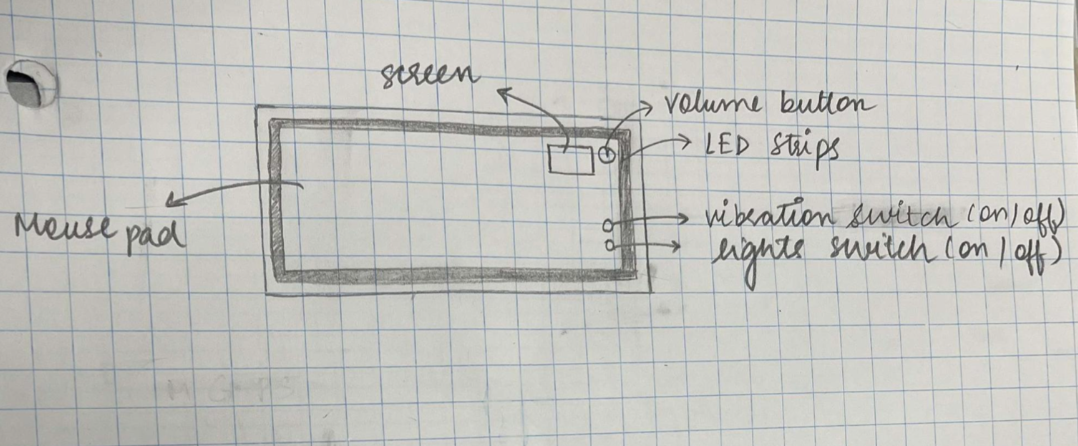 screen
volume button
LED strips
Mouse pad
vibration switch (on/off)
lights switch (on/off)